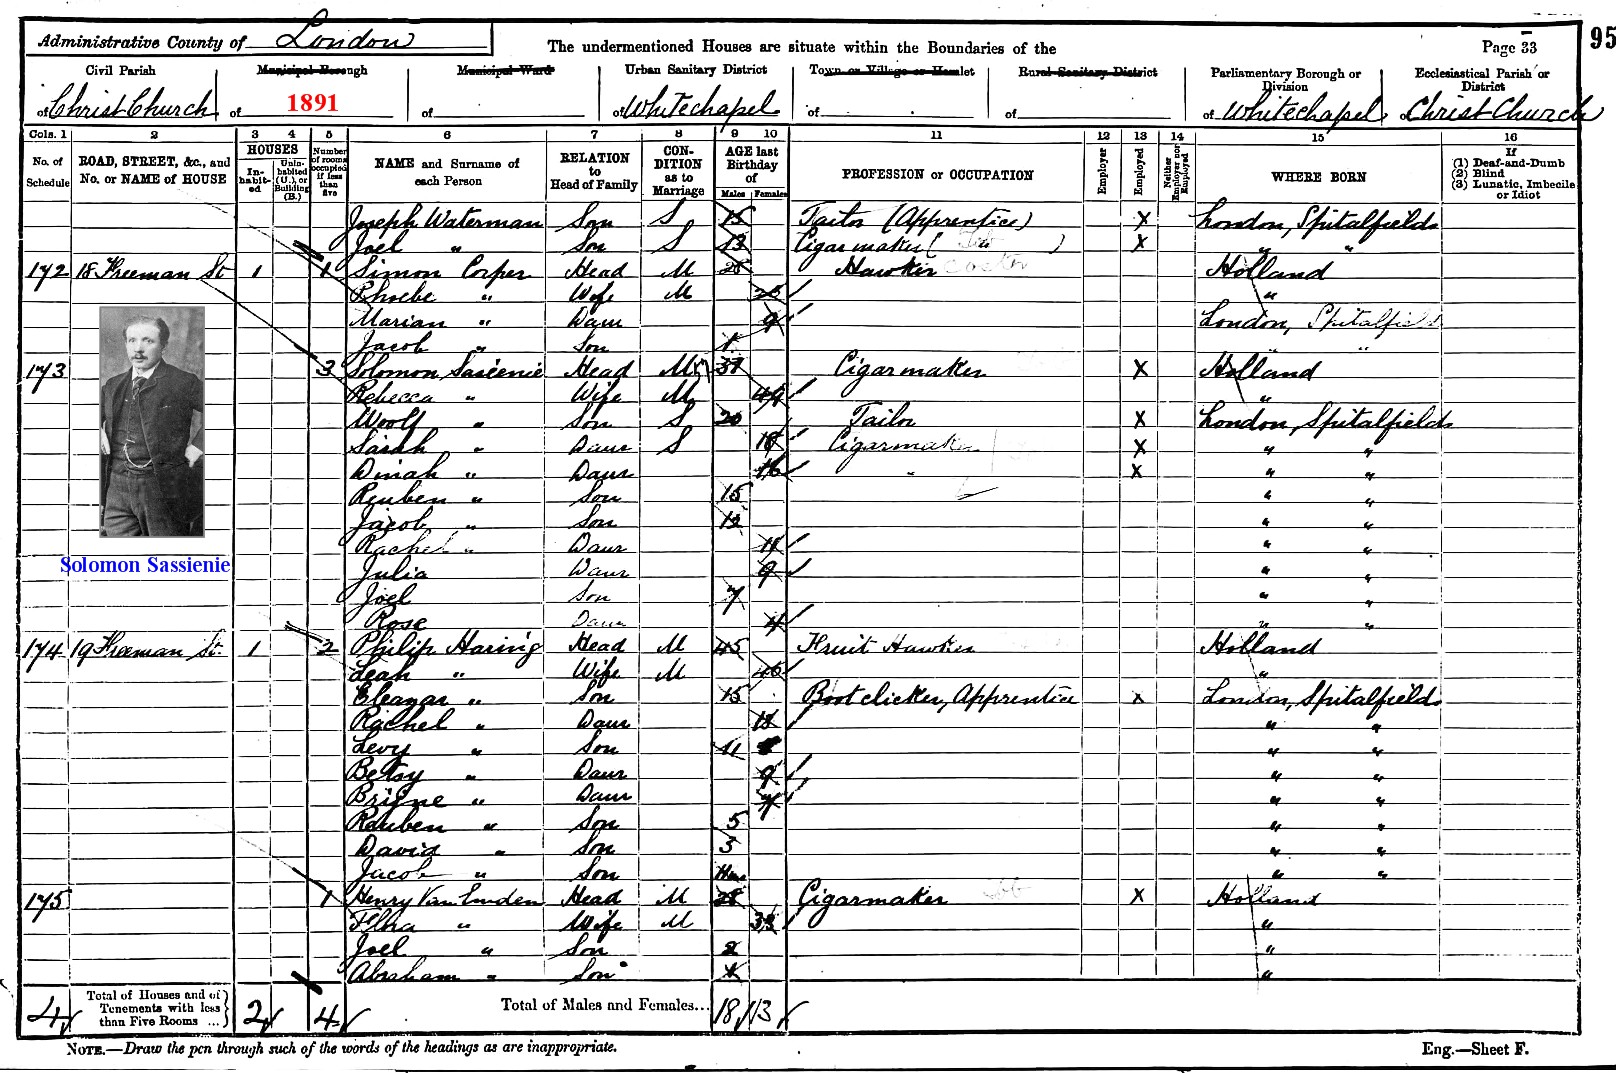 Administrative County of London
The undermentioned Houses are situate within the Boundaries of the
Page 33
95
Civil Parish Municipal Borough Municipal Ward Urban Sanitary District Town or Village or Hamlet Rural Sanitary District Parliamentary Borough or Division Ecclesiastical Parish or District
of Christ Church of 1891 of of Whitechapel of of of Whitechapel of Christ Church
Cols. 1 2 3 4 5 6 7 8 9 10 11 12 13 14 15 16
No. of Schedule ROAD, STREET, &c., and No. or NAME of HOUSE HOUSES Inhabited Uninhabited (U.), or Building (B.) Number of rooms occupied if less than five NAME and Surname of each Person RELATION to Head of Family CONDITION as to Marriage AGE last Birthday of Males Females PROFESSION or OCCUPATION Employer Employed Neither Employer nor Employed WHERE BORN If (1) Deaf-and-Dumb (2) Blind (3) Lunatic, Imbecile or Idiot
Joseph Waterman Son S 15 Tailor (Apprentice) X London, Spitalfields
Joel " Son S 13 Cigar maker ( ) X " "
172 18 Freeman St 1 1 Simon Corper Head M 28 Hawker Holland
Phoebe " Wife M "
Marian " Daur 9 London, Spitalfields
Jacob " Son 1 " "
173 3 Solomon Sasienie Head M Cigarmaker X Holland
Rebecca " Wife M "
Woolf " Son S 20 Tailor X London, Spitalfields
Sarah " Daur S 18 Cigarmaker X " "
Dinah " Daur 16 " X " "
Reuben " Son 15 " "
Jacob " Son " "
Rachel " Daur 11 " "
Julia Daur 9 " "
Joel Son 7 " "
Rose Daur 4 " "
Solomon Sassienie
174 19 Freeman St. 1 2 Philip Haring Head M 45 Fruit Hawker Holland
Leah " Wife M "
Eleazar " Son 15 Boot clicker, Apprentice X London, Spitalfields
Rachel " Daur " "
Levy " Son 11 " "
Betsy " Daur 9 " "
Daur 7 " "
Reuben " Son 5 " "
David " Son 3 " "
Jacob " Son " "
175 1 Henry Van Emden Head M 28 Cigarmaker X Holland
Flora " Wife M "
Joel " Son 2 "
Abraham " Son "
4 Total of Houses and of Tenements with less than Five Rooms ... 2 4 Total of Males and Females... 18 13
NOTE.—Draw the pen through such of the words of the headings as are inappropriate.
Eng.—Sheet F.